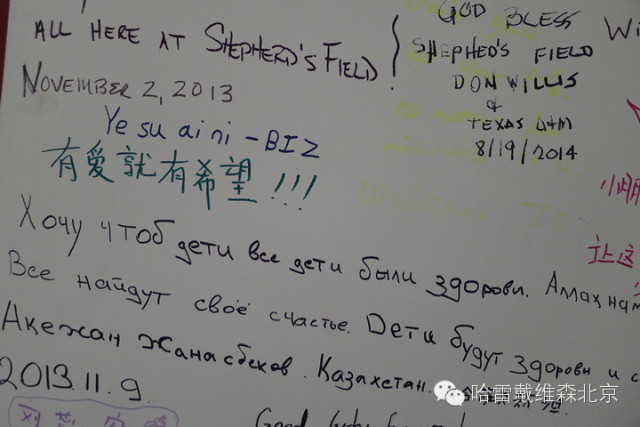 ALL HERE AT SHEPHERD'S FIELD!
NOVEMBER 2, 2013
GOD BLESS
SHEPHED'S FIELD
DON WILLIS
&
TEXAS A&M
8/19/2014
Wi
Ye su ai ni - BIZ
有爱就有希望!!!
小朋
让这
Хочу чтоб дети все дети были здорови. Аллах нам
Все найдут своё счастье. Дети будут здоровы и с
Акежан Жанасбеков. Казахстан.
2013.11.9.
哈雷戴维森北京
Good